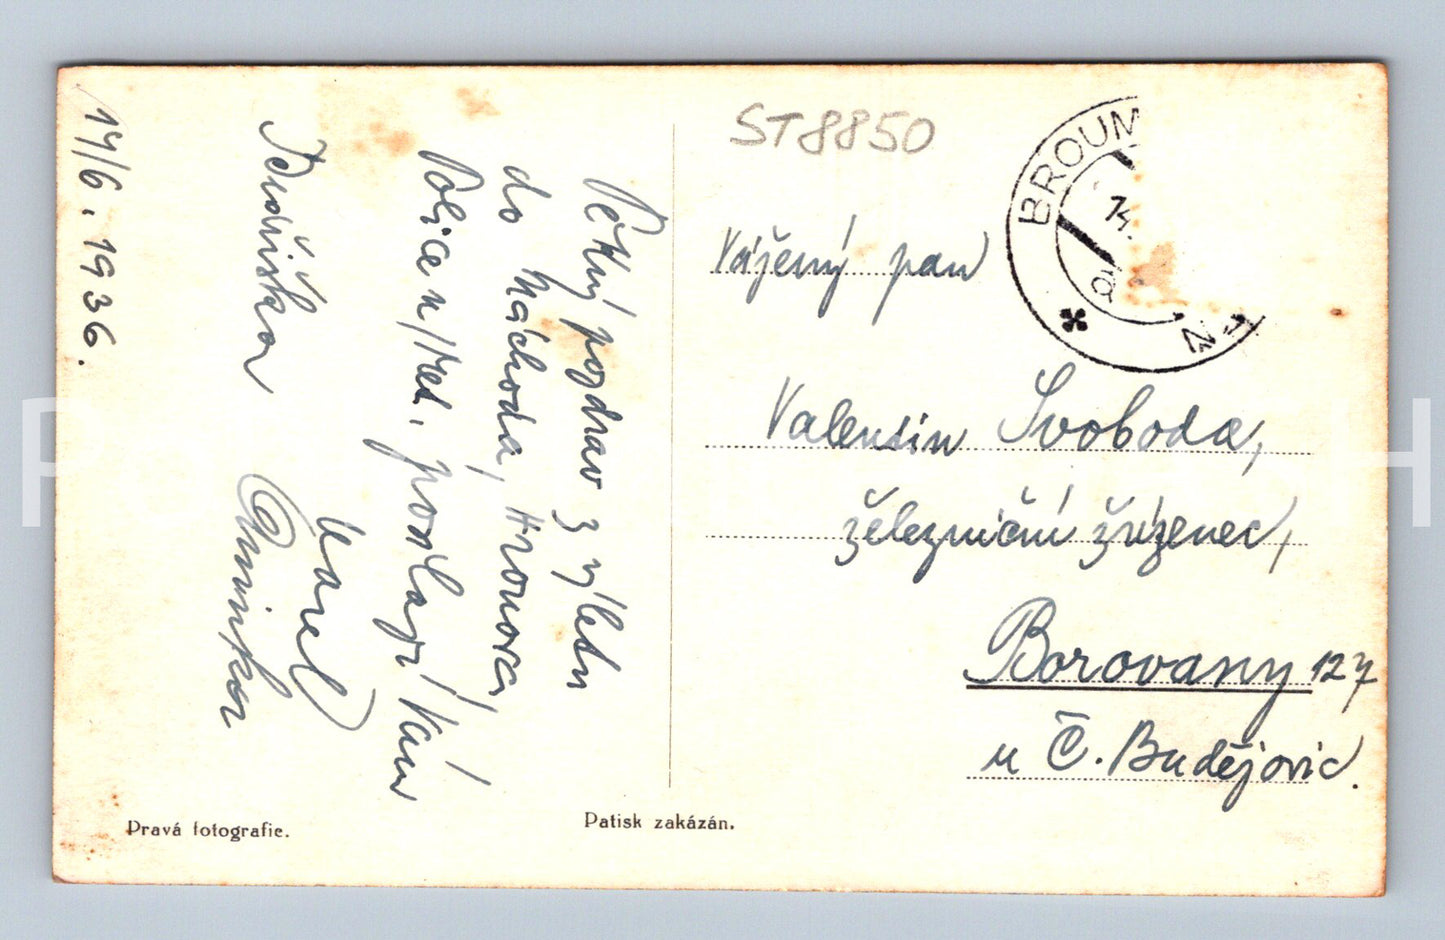 14/6. 1936.
Pěkný pozdrav z výletu
do Náchoda, Hronova,
Police n/Met. posílají Vám
Karel
Anninka
ST8850
BROUM
Vážený pan
Valentin Svoboda,
železniční zřízenec,
Borovany 127
u Č. Budějovic.
Pravá fotografie.
Patisk zakázán.